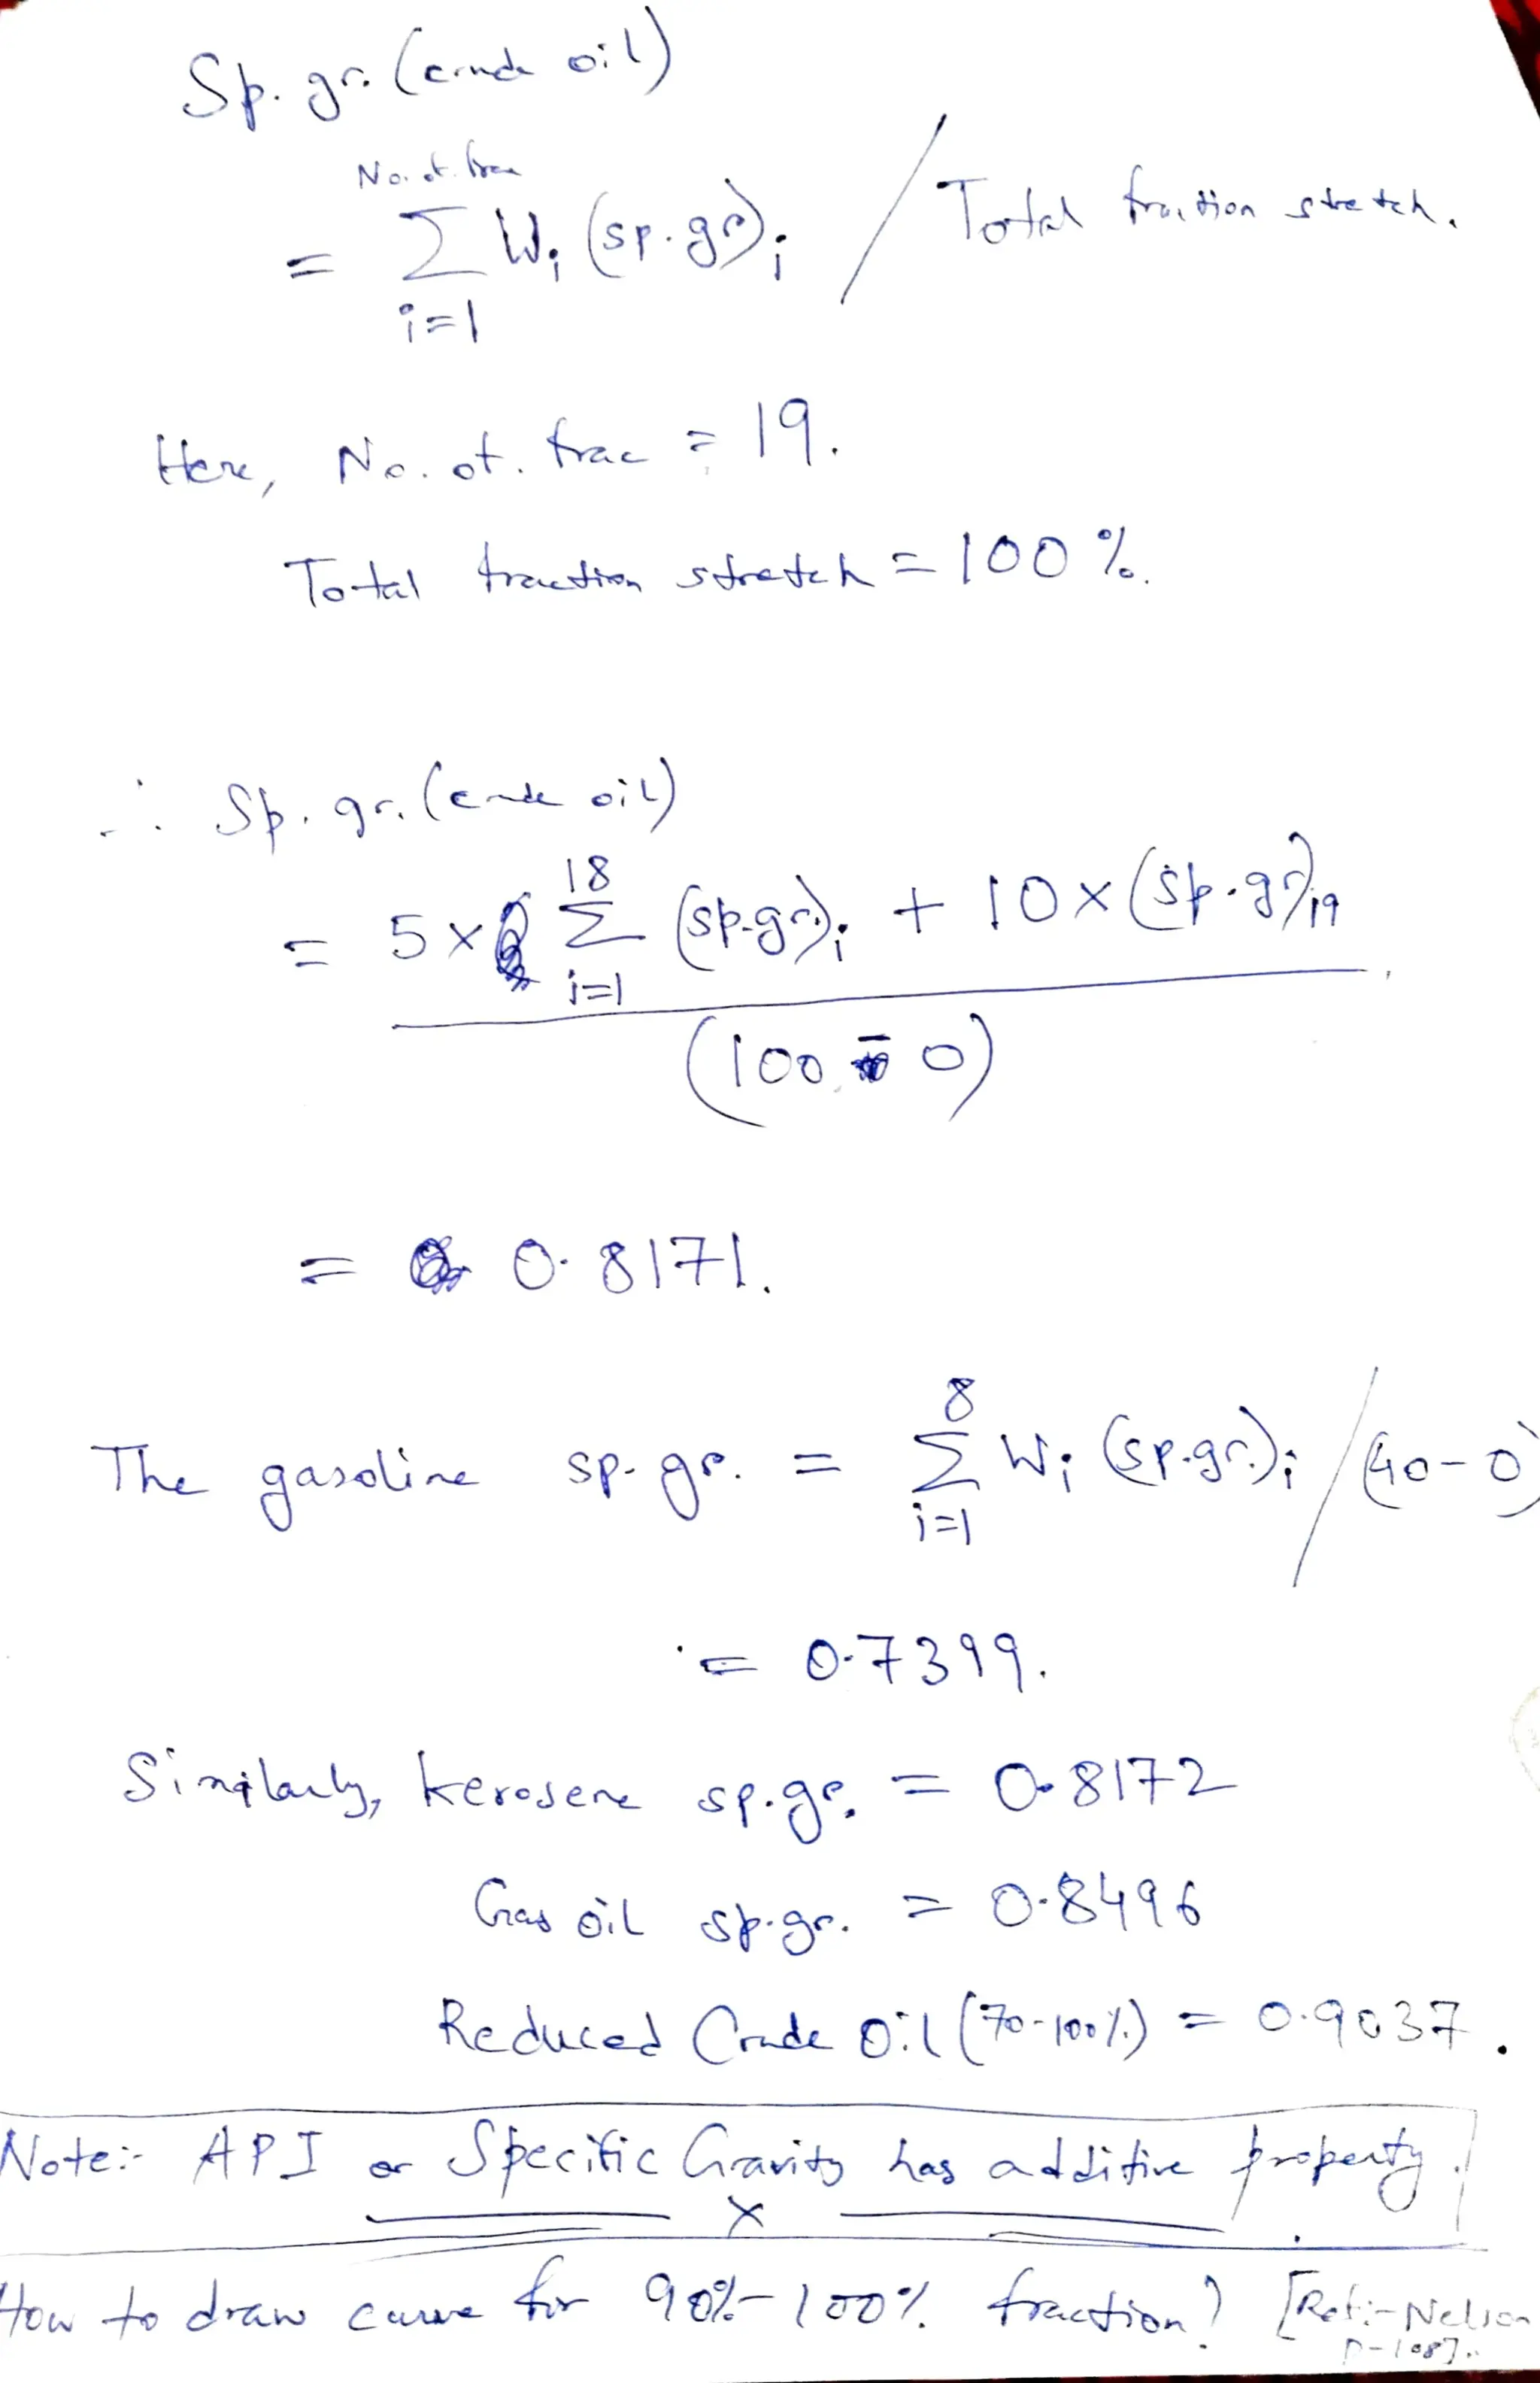 Sp. gr. (crude oil)
No. of. frac
= Σ Wi (sp.gr)i / Total fraction stretch.
i=1
Here, No. of. frac = 19.
Total fraction stretch = 100 %.
∴ Sp. gr. (crude oil)
18
= 5 × Σ (sp.gr.)i + 10 × (sp.gr)19
i=1
(100 - 0)
= 0.8171.
8
The gasoline sp. gr. = Σ Wi (sp.gr.)i / (40-0)
i=1
= 0.7399.
Similarly, kerosene sp.gr. = 0.8172
Gas oil sp.gr. = 0.8496
Reduced Crude Oil (70-100%) = 0.9037.
Note:- API or Specific Gravity has additive property.
X
How to draw curve for 90%-100% fraction? [Ref:- Nelson
P-108].